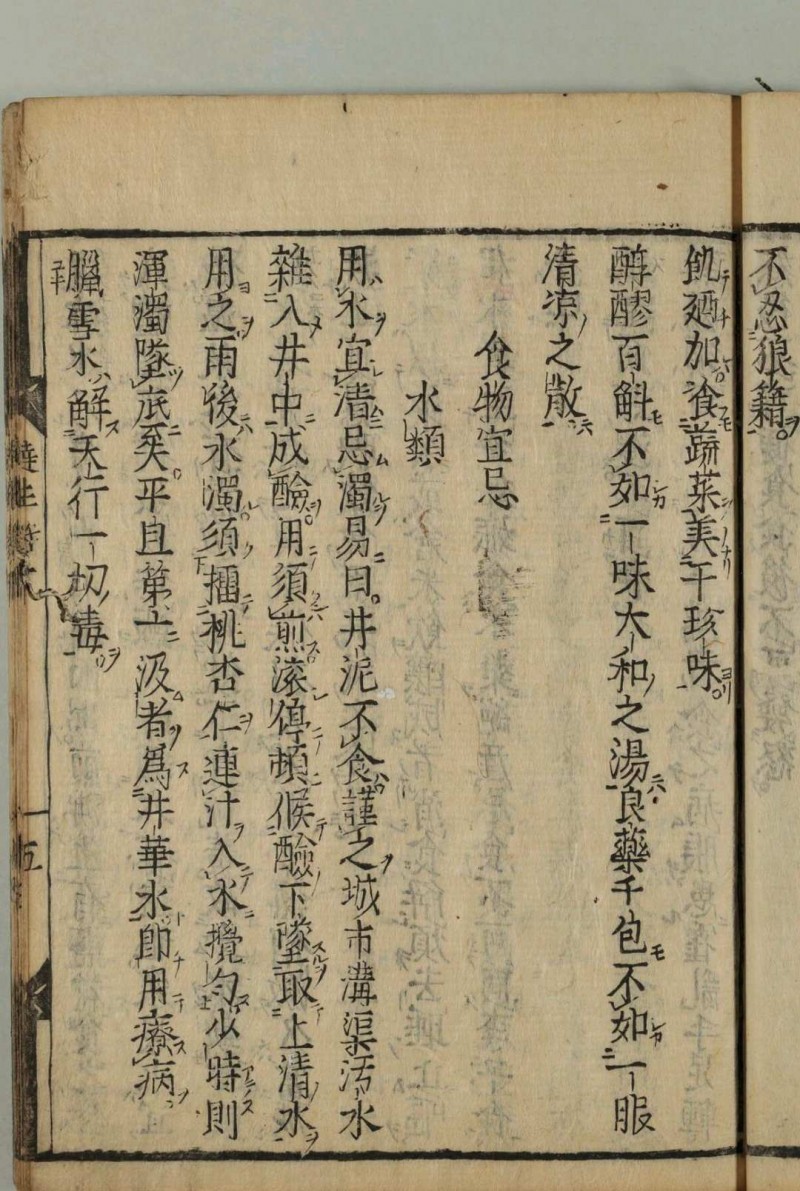 不忍狼籍
飢廼加飡蔬菜美于珍味
醇醪百斛不如一味大和之湯良藥千包不如一服
清凉之散
食物宜忌
水類
用水宜清忌濁易曰井泥不食謹之城市溝渠汚水
雜入井中成醶用須煎滚停頓候醶下墜取上清水
用之雨後水濁須擂桃杏仁連汁入水攪勻少時則
渾濁墜底矣平旦第一汲者爲井華水即用療病
臘雪水解天行一切毒